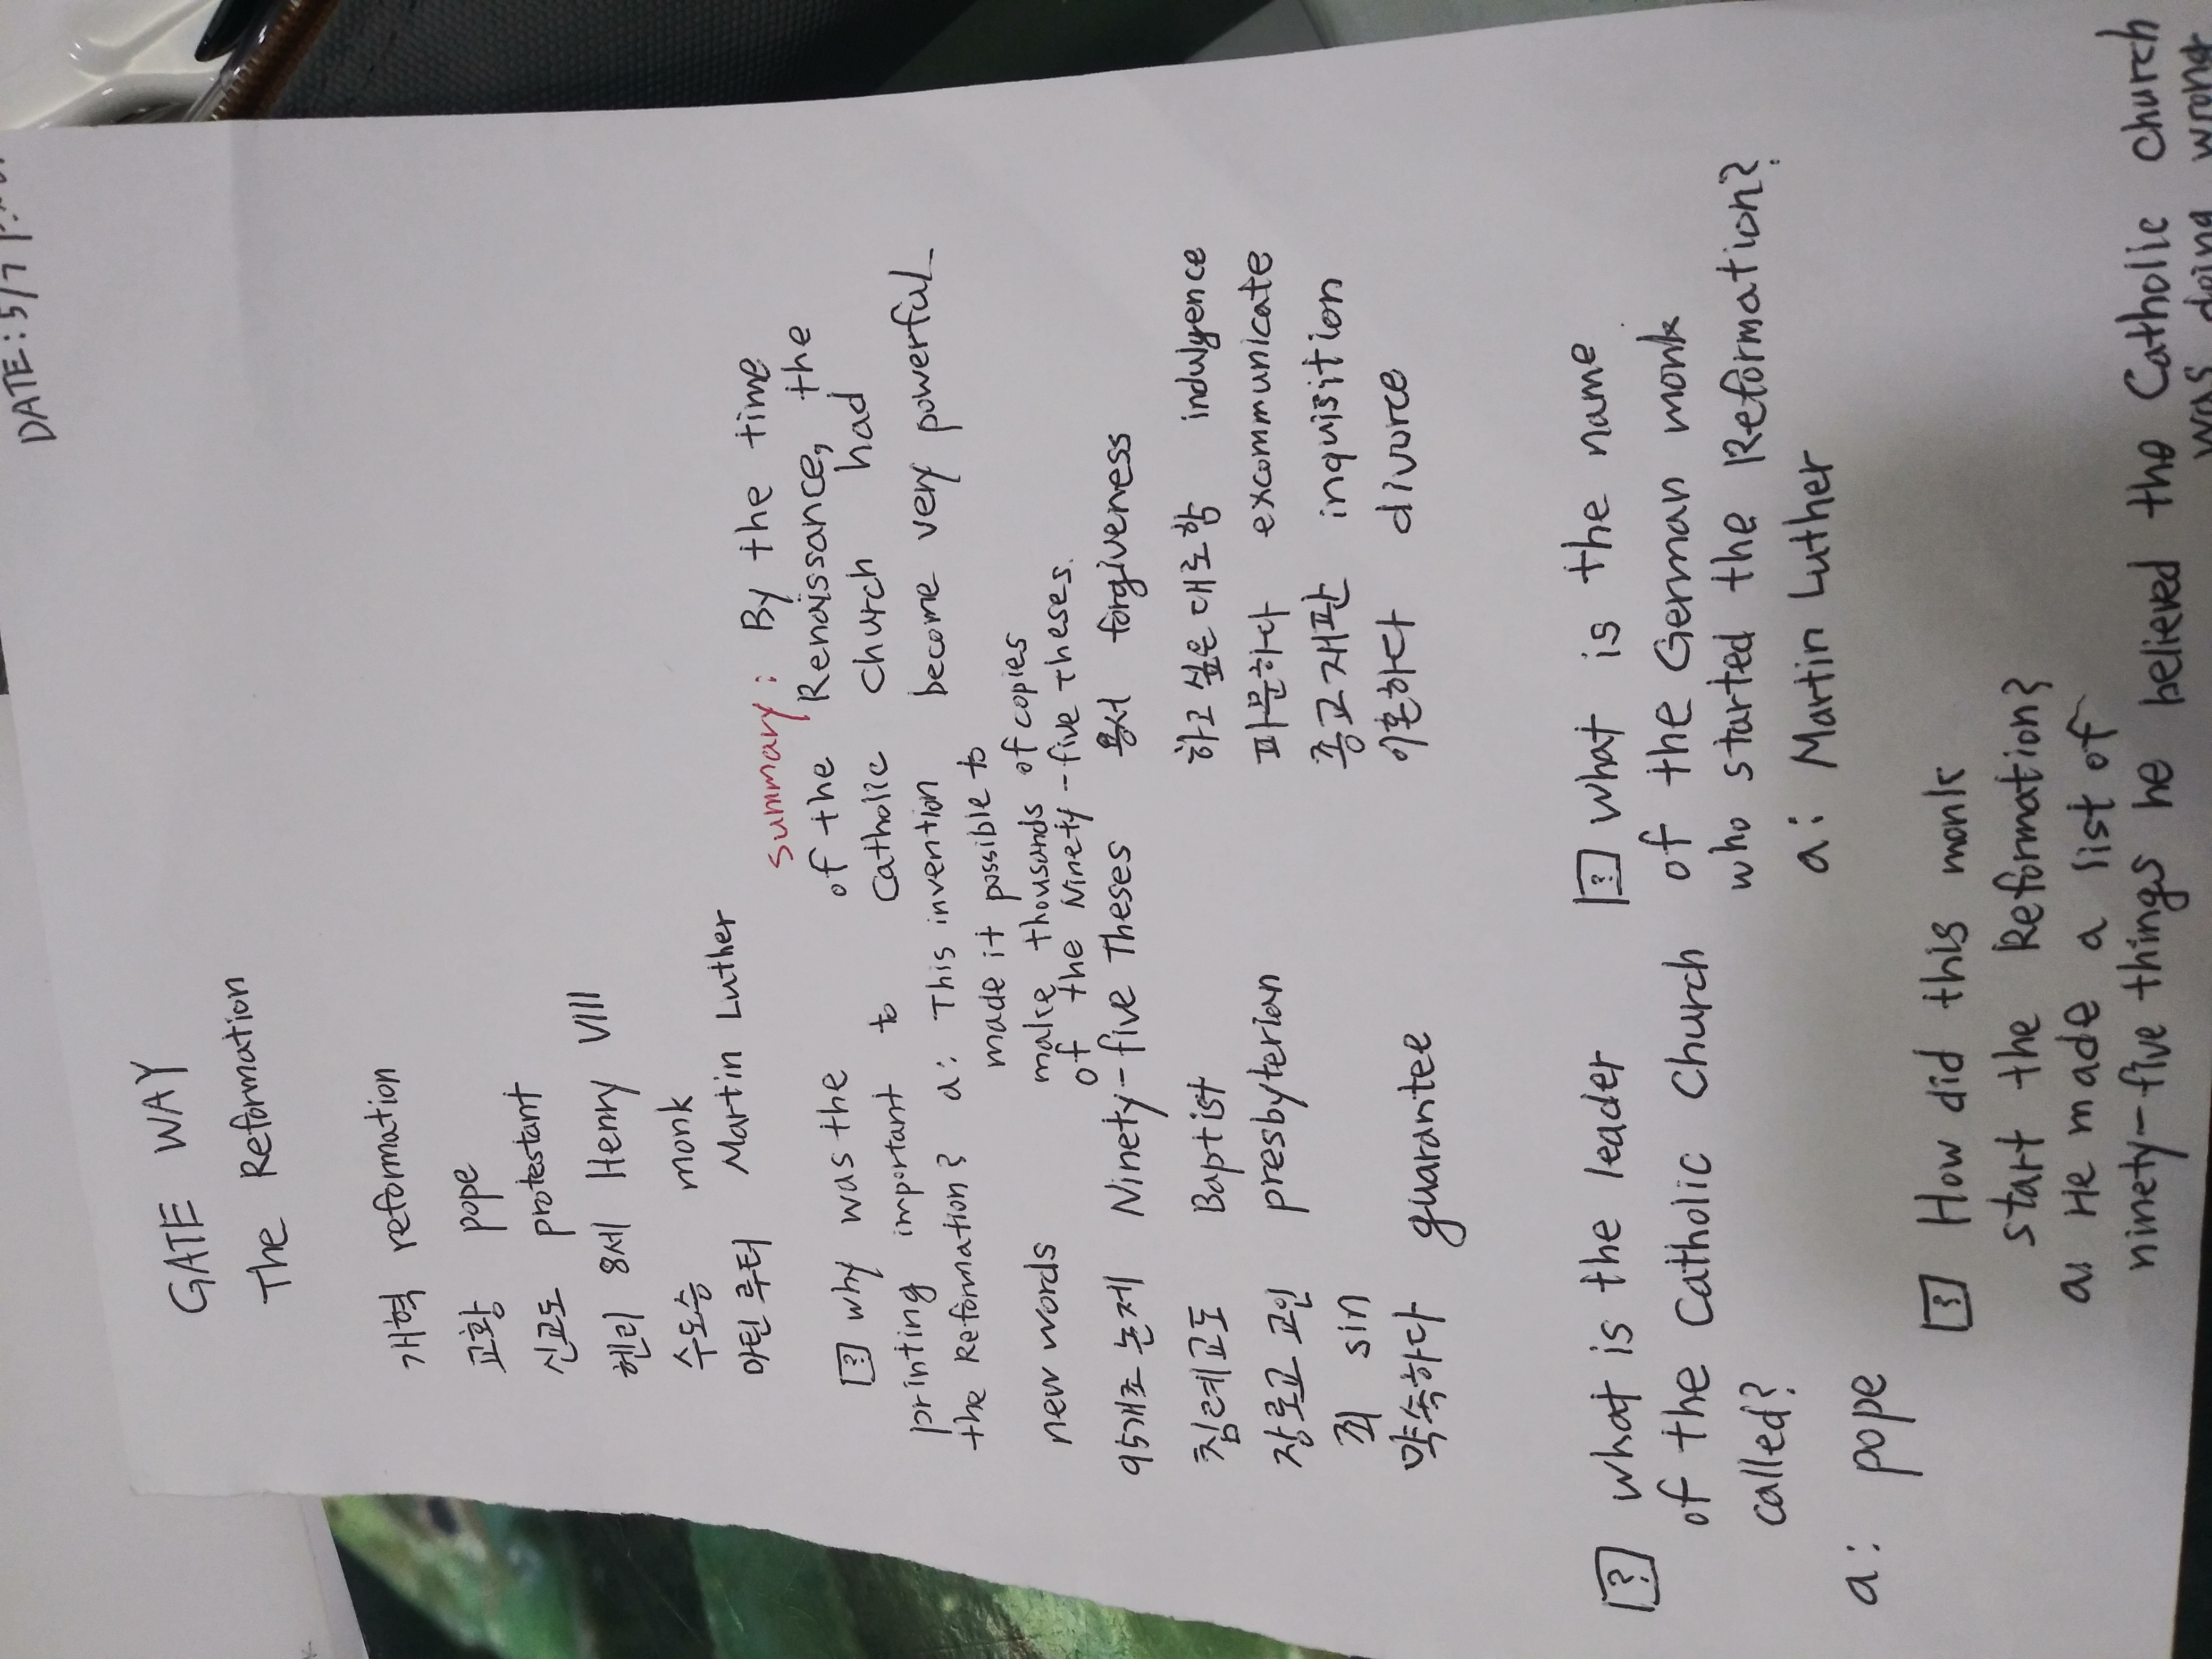 DATE: 5/7
GATE WAY
The Reformation
개혁 reformation
교황 pope
신교도 protestant
헨리 8세 Henry VIII
수도승 monk
마틴 루터 Martin Luther
summary: By the time
of the Renaissance, the
Catholic church had
become very powerful
[?] why was the
printing important to
the Reformation?
a: This invention
made it possible to
make thousands of copies
of the Ninety-five Theses.
new words
95개조 논제 Ninety-five Theses
침례교도 Baptist
장로교 교인 presbyterian
죄 sin
약속하다 guarantee
용서 forgiveness
하고 싶은 대로 함 indulgence
파문하다 excommunicate
종교재판 inquisition
이혼하다 divorce
[?] what is the leader
of the Catholic Church
called?
a: pope
[?] what is the name
of the German monk
who started the Reformation?
a: Martin Luther
[?] How did this monk
start the Reformation?
a: He made a list of
ninety-five things he believed the Catholic church
was doing wrong